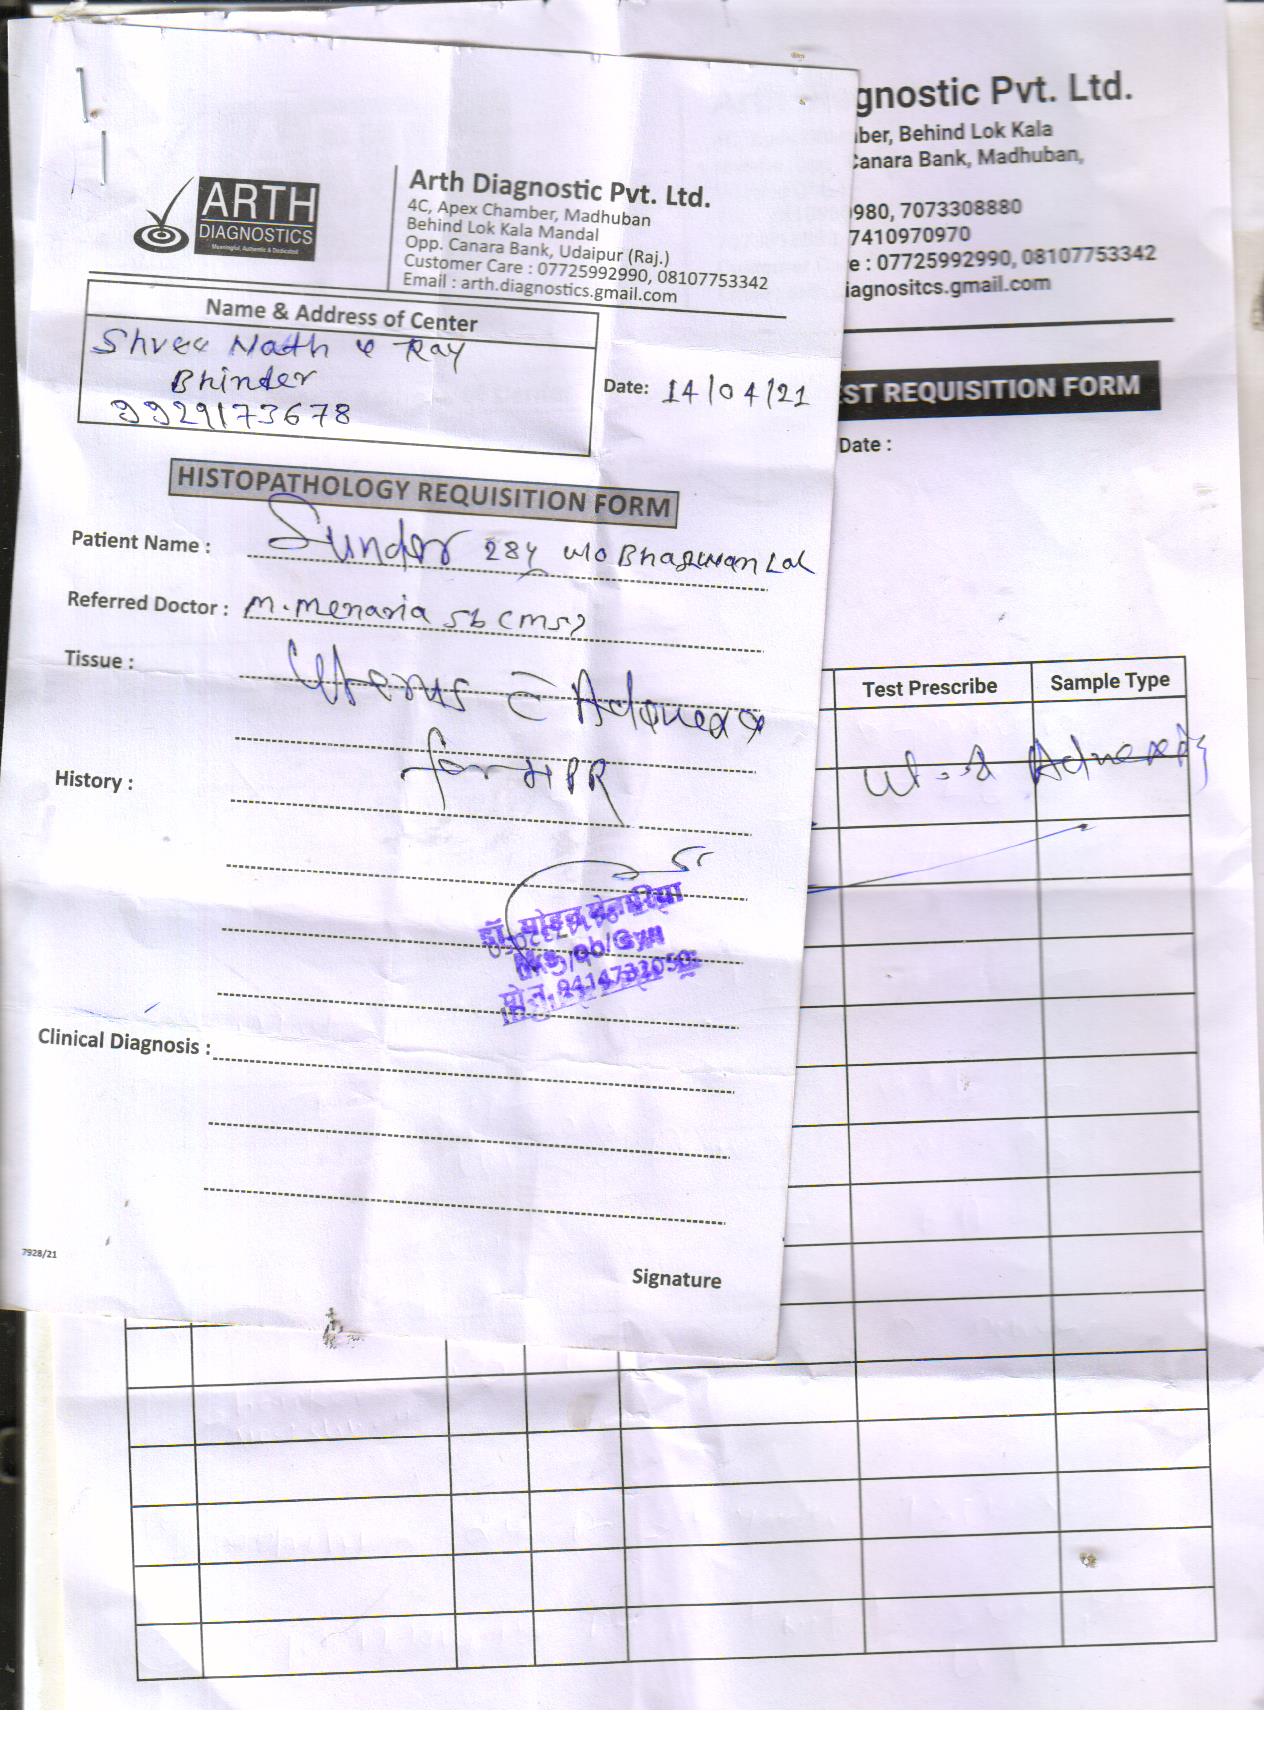 ARTH
DIAGNOSTICS
Meaningful, Authentic & Dedicated
Arth Diagnostic Pvt. Ltd.
4C, Apex Chamber, Madhuban
Behind Lok Kala Mandal
Opp. Canara Bank, Udaipur (Raj.)
Customer Care : 07725992990, 08107753342
Email : arth.diagnostics.gmail.com
Name & Address of Center
Shree Nath Ray
Bhinder
9929173678
Date: 14/04/21
HISTOPATHOLOGY REQUISITION FORM
Patient Name : Sunder 28y w/o Bhagwan Lal
Referred Doctor : M. Menaria
Tissue : Uterus c̄ Adnexa
for HPR
History :
डॉ. मोहन मेनारिया
/Gyn
मो.
Clinical Diagnosis :
7928/21
Signature
gnostic Pvt. Ltd.
ber, Behind Lok Kala
Canara Bank, Madhuban,
980, 7073308880
7410970970
e : 07725992990, 08107753342
iagnositcs.gmail.com
ST REQUISITION FORM
Date :
Test Prescribe
Sample Type